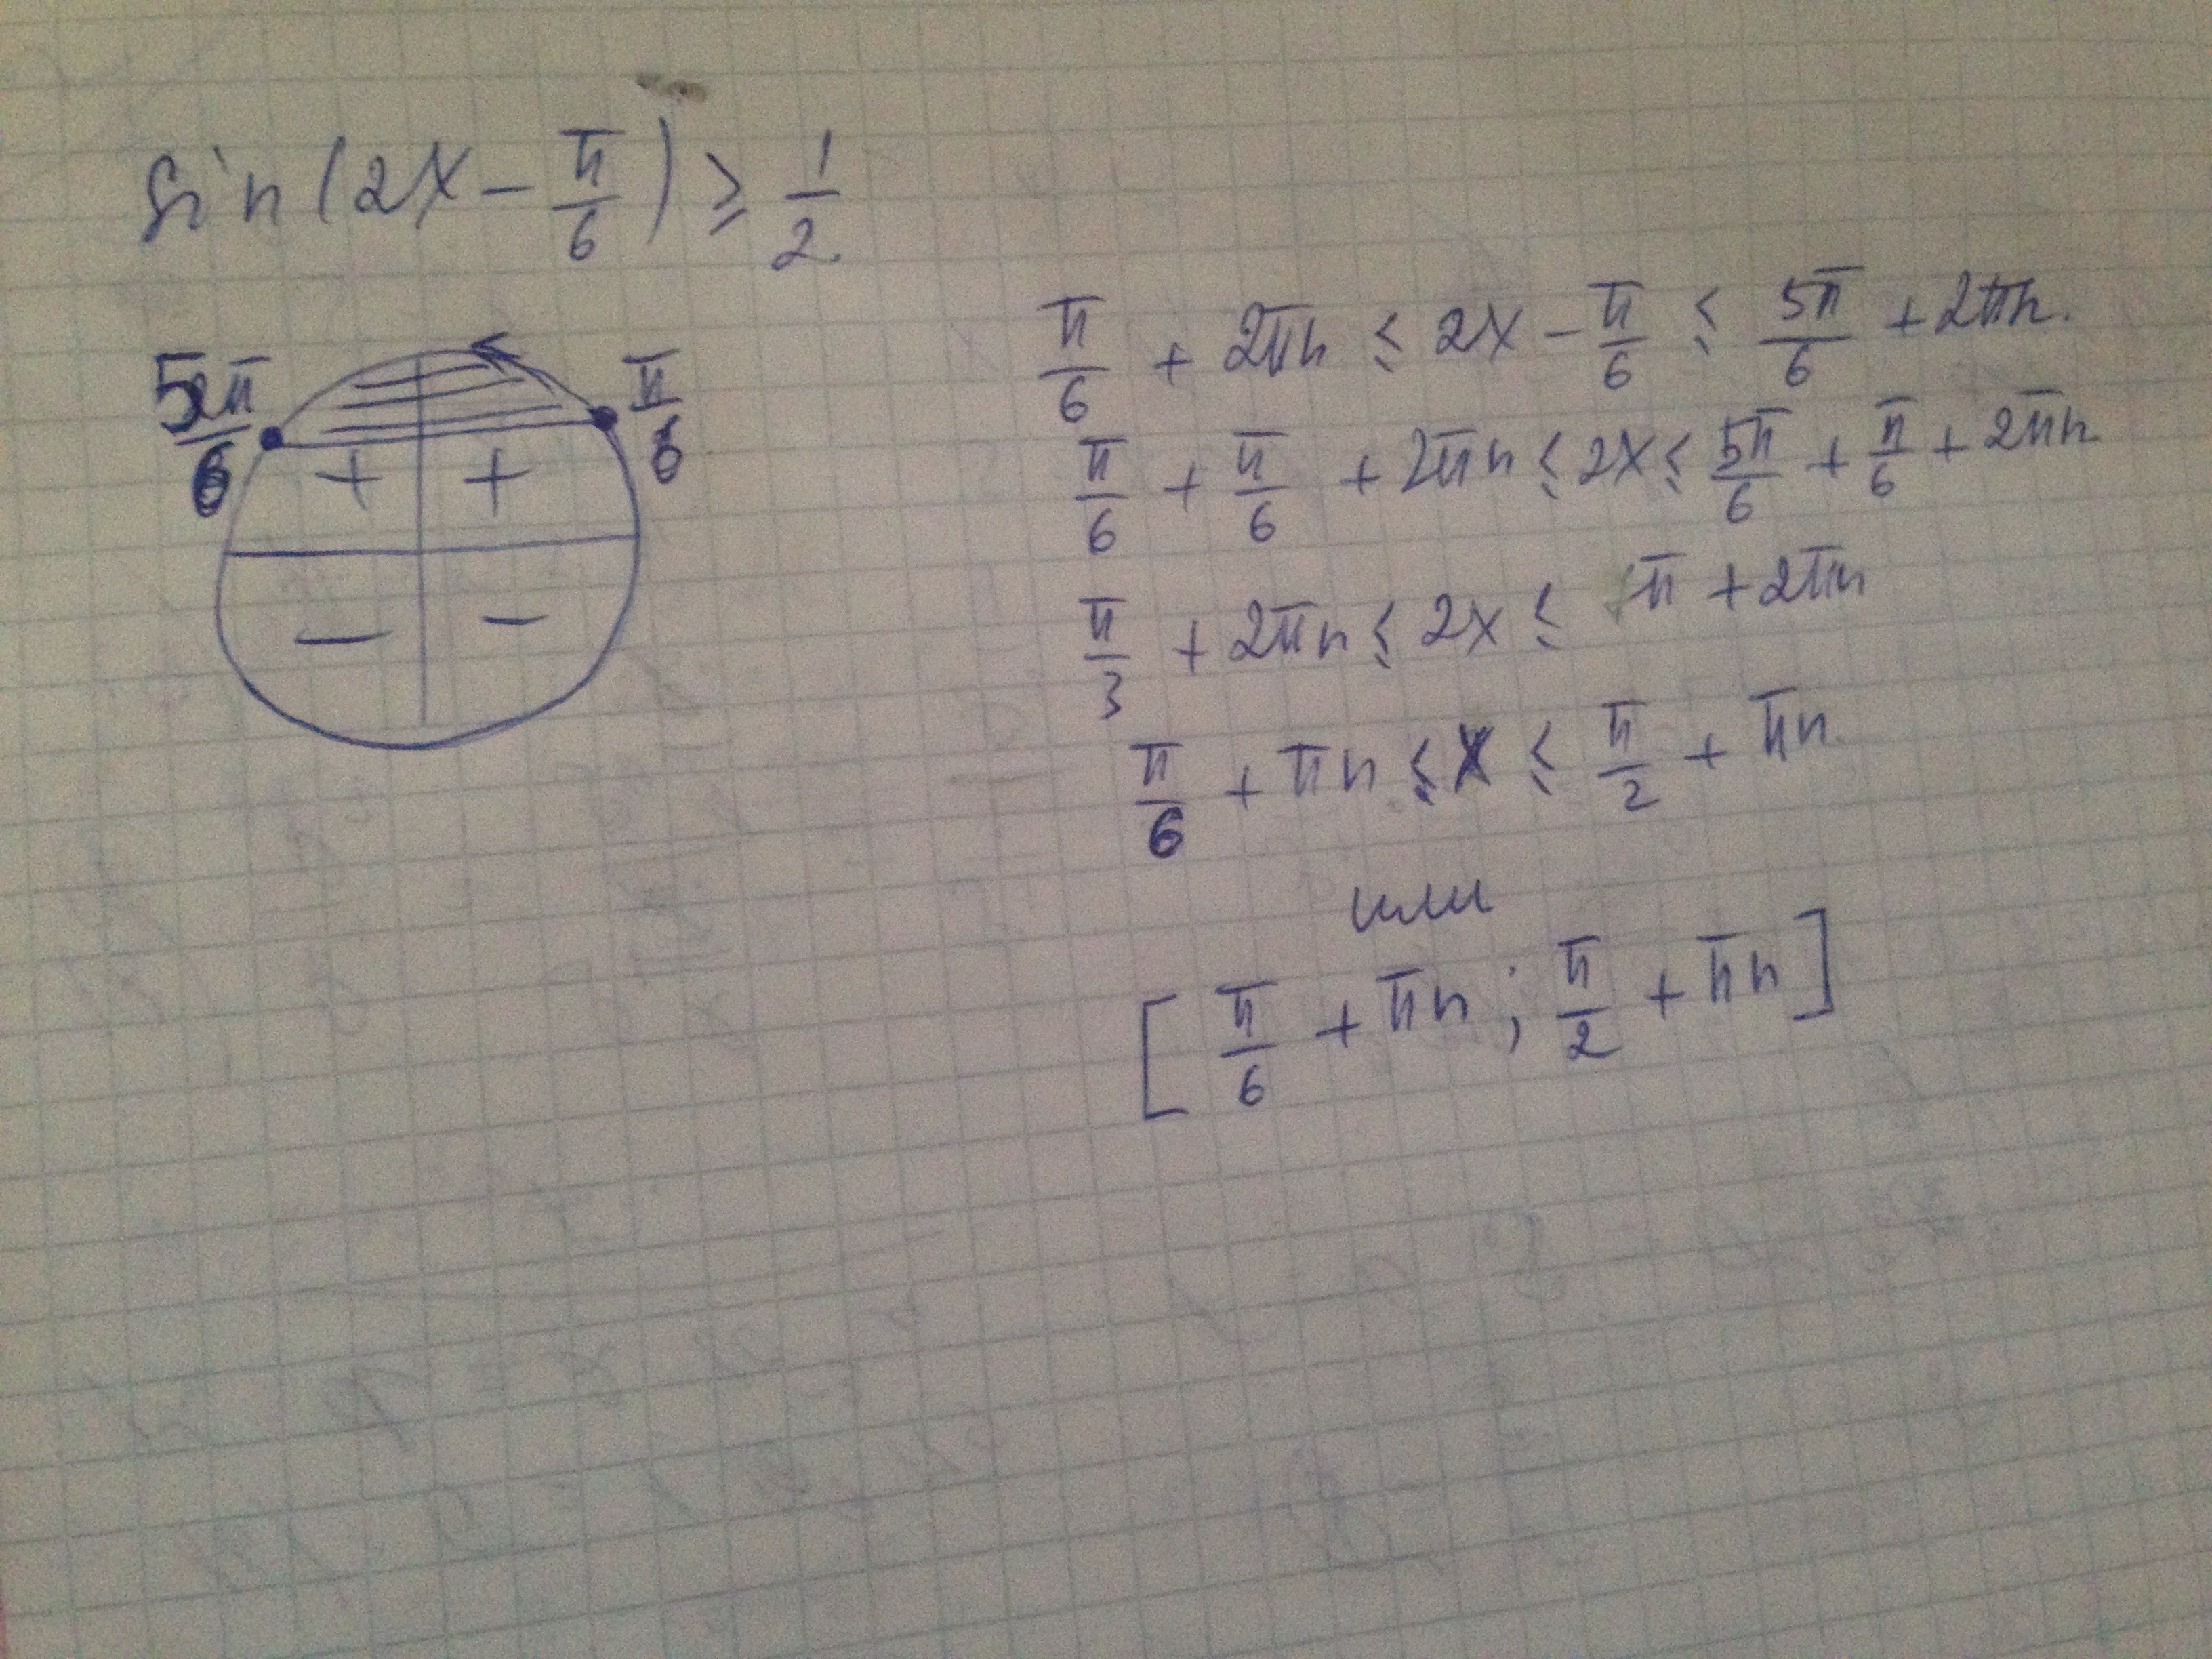 sin(2x - π/6) ≥ 1/2
5π/6 π/6
+ +
- -
π/6 + 2πn ≤ 2x - π/6 ≤ 5π/6 + 2πn.
π/6 + π/6 + 2πn ≤ 2x ≤ 5π/6 + π/6 + 2πn
π/3 + 2πn ≤ 2x ≤ π + 2πn
π/6 + πn ≤ x ≤ π/2 + πn.
или
[π/6 + πn; π/2 + πn]